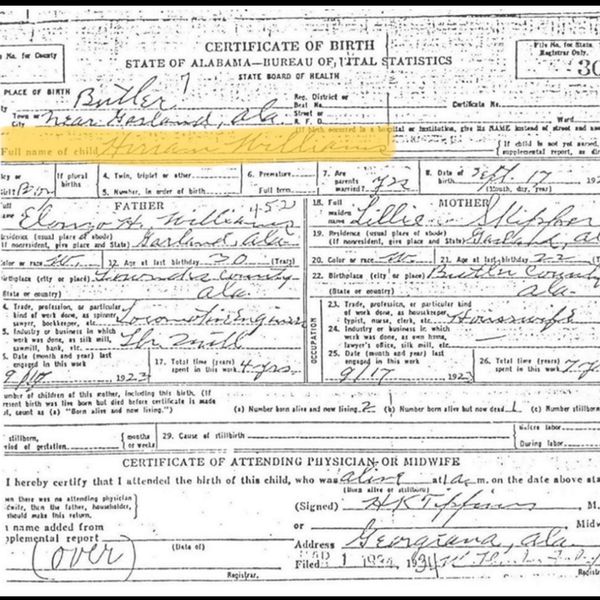 CERTIFICATE OF BIRTH
STATE OF ALABAMA—BUREAU OF VITAL STATISTICS
STATE BOARD OF HEALTH
File No. for State
Registrar Only.
e No. for County
30
PLACE OF BIRTH
Butler
Reg. District or
Beat No.
Certificate No.
Town or
City
near Garland, ala
Street or
R. F. D.
Ward
birth occurred in a hospital or institution, give its NAME instead of street and
Full name of child Hiriam Williams
If child is not yet named,
supplemental report, as
Boy
If plural
births
4. Twin, triplet or other
5. Number, in order of birth
6. Premature
Full term
7. Are
parents
married? yes
8. Date of
birth Sept. 17
(Month, day, year)
FATHER
Elonzo H. Williams
452
18. Full
maiden
name
MOTHER
Lillie Skipper
Residence (usual place of abode)
If nonresident, give place and State) Garland, ala.
19. Residence (usual place of abode)
(If nonresident, give place and State) Garland,
Color or race W. 12. Age at last birthday 30 (Years)
20. Color or race W. 21. Age at last birthday 22
Birthplace (city or place) Lowndes County
(State or country) ala.
22. Birthplace (city or place) Butler County
(State or country) ala.
4. Trade, profession, or particular
kind of work done, as spinner,
sawyer, bookkeeper, etc. Locomotive Engineer
5. Industry or business in which
work was done, as silk mill,
sawmill, bank, etc.
OCCUPATION
23. Trade, profession, or particular kind
of work done, as housekeeper,
typist, nurse, clerk, etc. Housewife
24. Industry or business in which
work was done, as own home,
lawyer's office, silk mill, etc.
Date (month and year) last
engaged in this work
9/17 1923
17. Total time (years)
spent in this work 4 yrs.
25. Date (month and year) last
engaged in this work
9/17 1923
26. Total time (years)
spent in this work 7
umber of children of this mother, including this birth. (If
resent birth was live born but died before certificate is made
t, count as (a) "Born alive and now living.")
(a) Number born alive and now living 2 (b) Number born alive but now dead 1 (c) Number stillborn
stillborn,
riod of gestation
months
or weeks
29. Cause of stillbirth
Before labor
During labor
CERTIFICATE OF ATTENDING PHYSICIAN OR MIDWIFE
I hereby certify that I attended the birth of this child, who was alive at 1 a. m. on the date above
(Born alive or stillborn)
When there was no attending physician
midwife, then the father, householder,
should make this return.
(Signed) M.
n name added from
pplemental report
(Date of)
or
Midw
(over)
Address Georgiana, ala.
Filed 1 1934, 1934
Registrar.
Registrar.